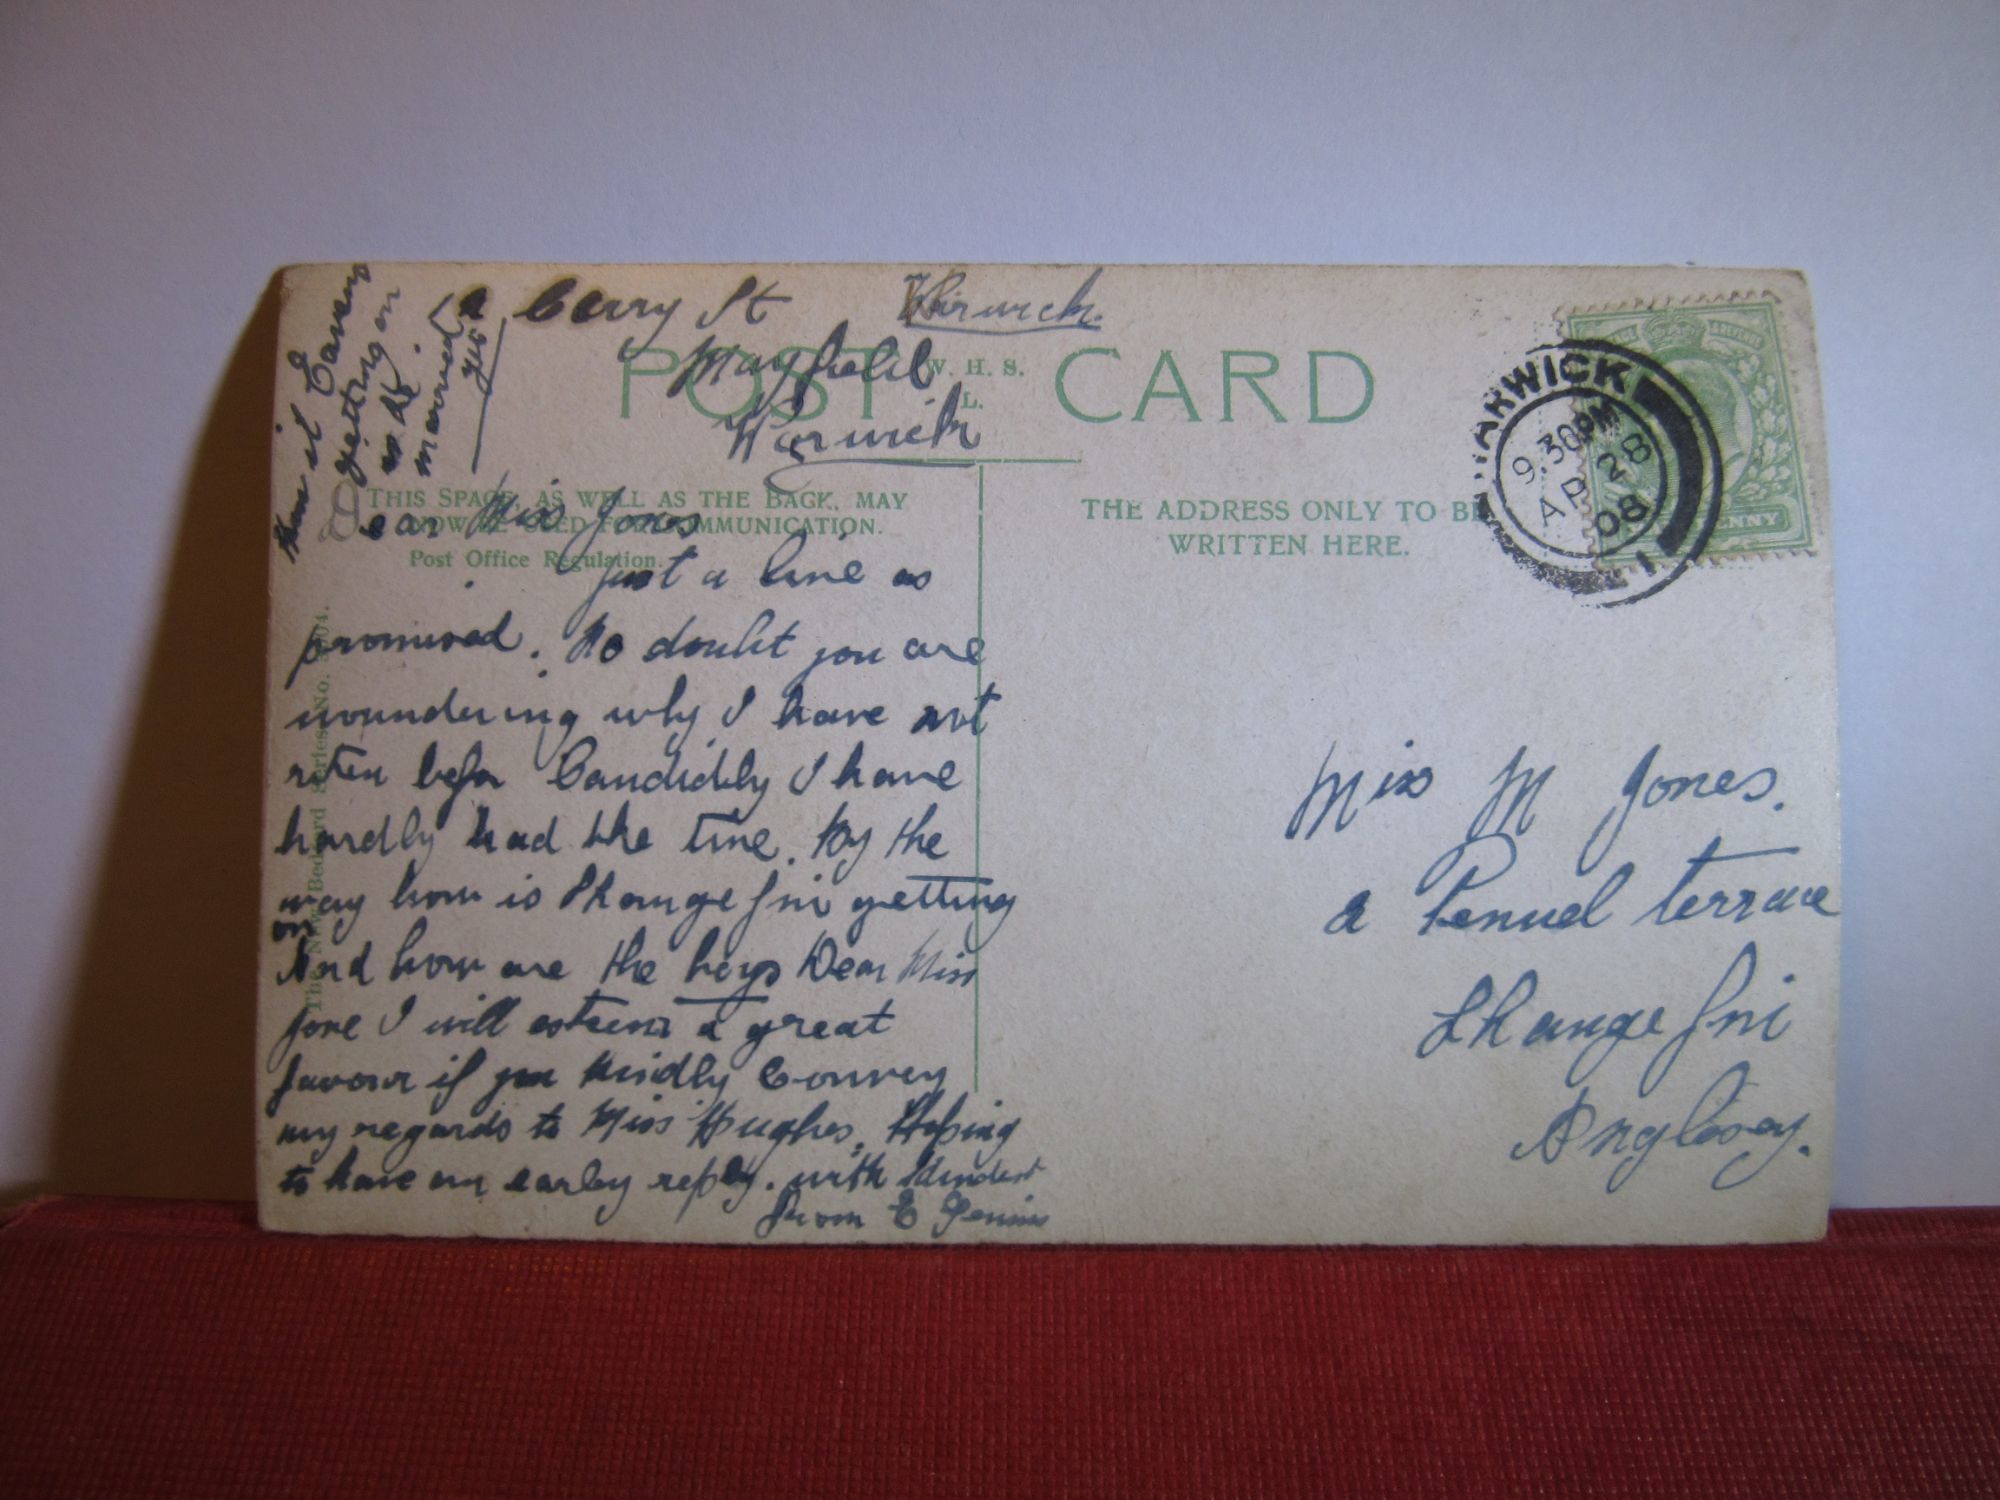 2 Cerry St Warwick.
Mayfield
Warwick
POST CARD
W. H. S.
L.
THIS SPACE, AS WELL AS THE BACK, MAY
NOW BE USED FOR COMMUNICATION.
Post Office Regulation.
THE ADDRESS ONLY TO BE
WRITTEN HERE.
WARWICK
9.30PM
AP 28
08
1
PENNY
The New Bedford Series No.
Dear Miss Jones
Just a line as
promised. No doubt you are
woundering why I have not
riten befor Candidily I have
hardly had the time. By the
way how is Lhangefni getting
on
And how are the boys Dear Miss
Jone I will esteem a great
favour if you kindly Convey
my regards to Miss Hughes, Hoping
to have an earley reply. with kindest
from E
how is
getting on
is he
married
yet
Miss M Jones.
2 Penuel terrace
Lhangefni
Anglesey.